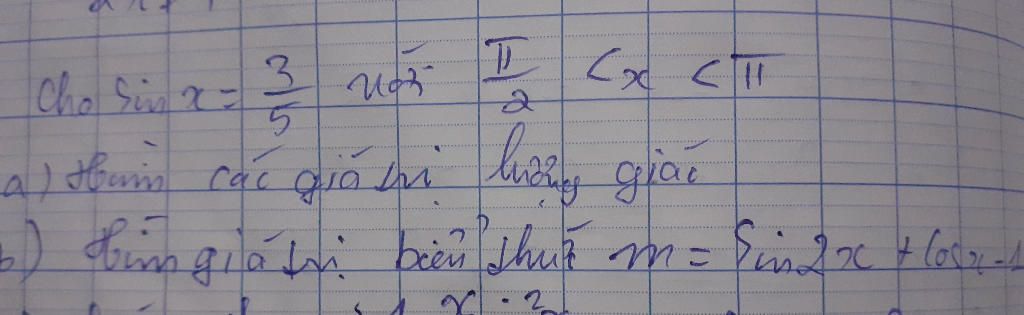 Cho sin x = 3/5 với π/2 < x < π
a) Tìm các giá trị lượng giác
b) Tìm giá trị biểu thức m = Sin2x + Cosx - 1